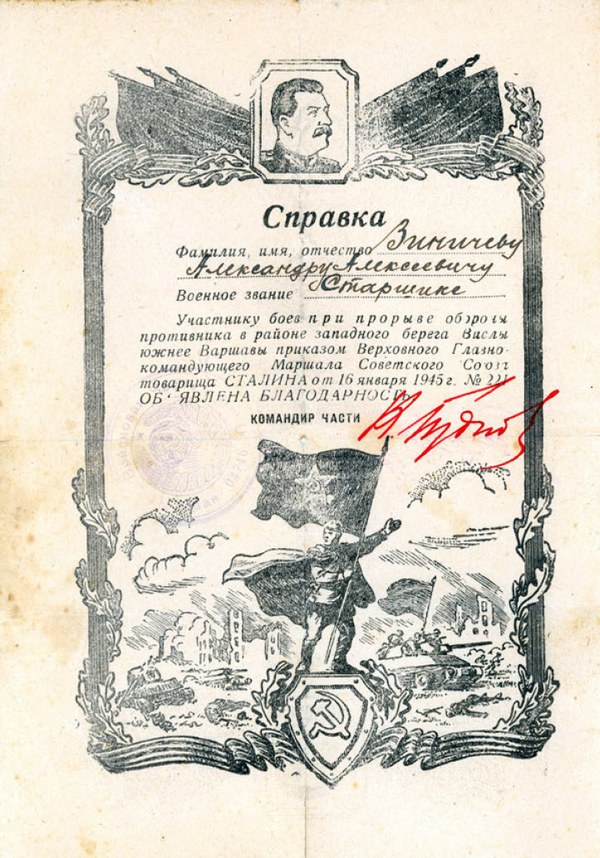 Справка
Фамилия, имя, отчество Зиничеву
Александру Алексеевичу
Военное звание Старшине
Участнику боев при прорыве обороны
противника в районе западного берега Вислы
южнее Варшавы приказом Верховного Главно-
командующего Маршала Советского Союза
товарища СТАЛИНА от 16 января 1945 г. № 221
ОБ'ЯВЛЕНА БЛАГОДАРНОСТЬ
КОМАНДИР ЧАСТИ